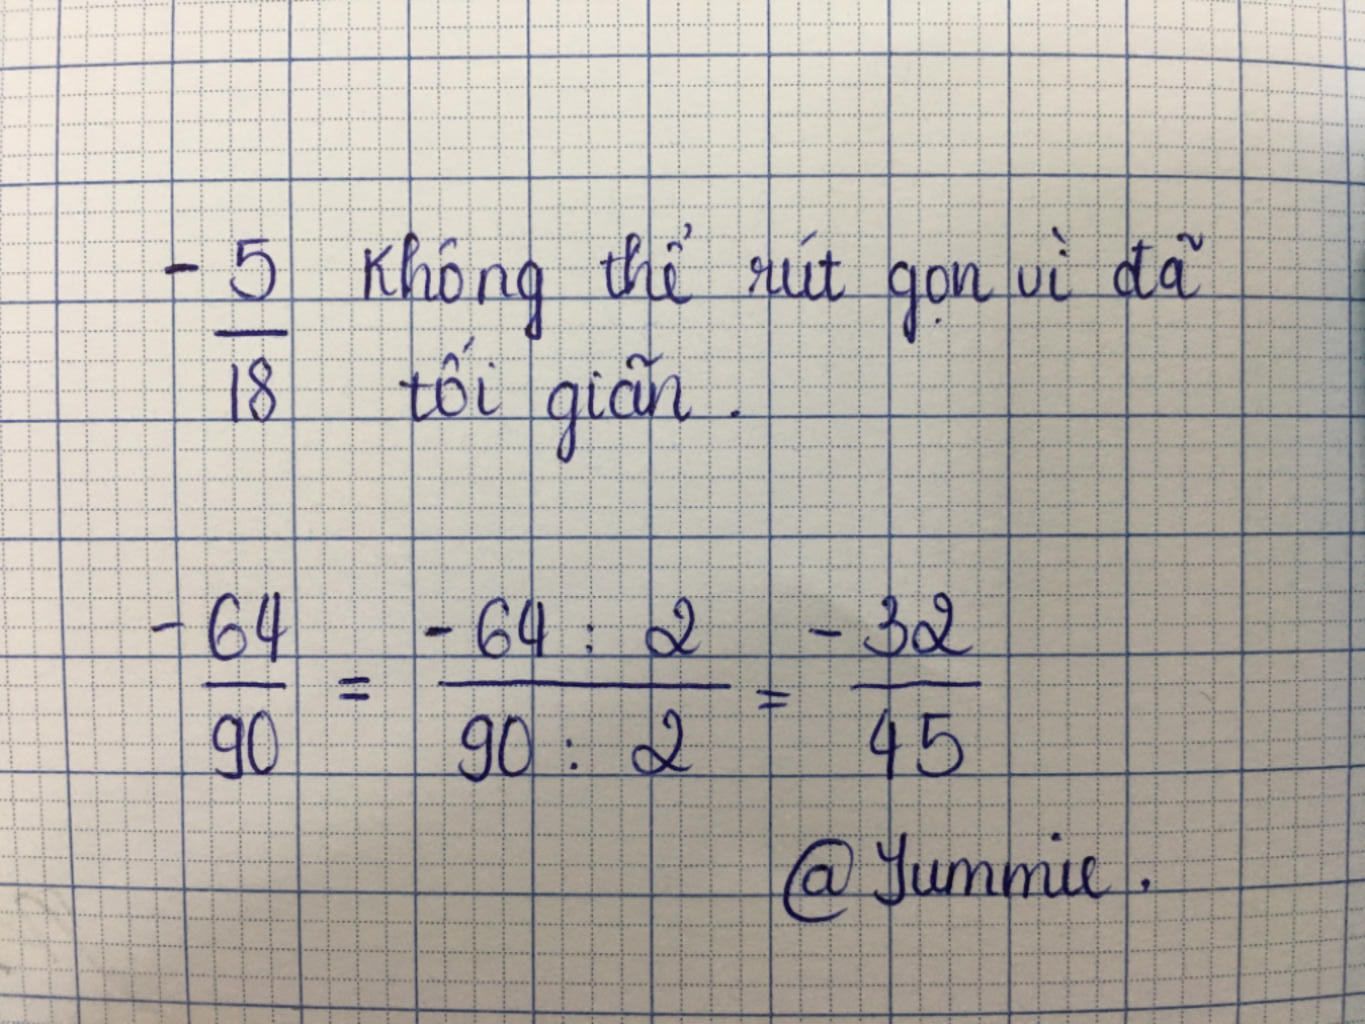 -5/18 Không thể rút gọn vì đã
tối giãn.
-64/90 = -64 : 2/90 : 2 = -32/45
@Yummie.